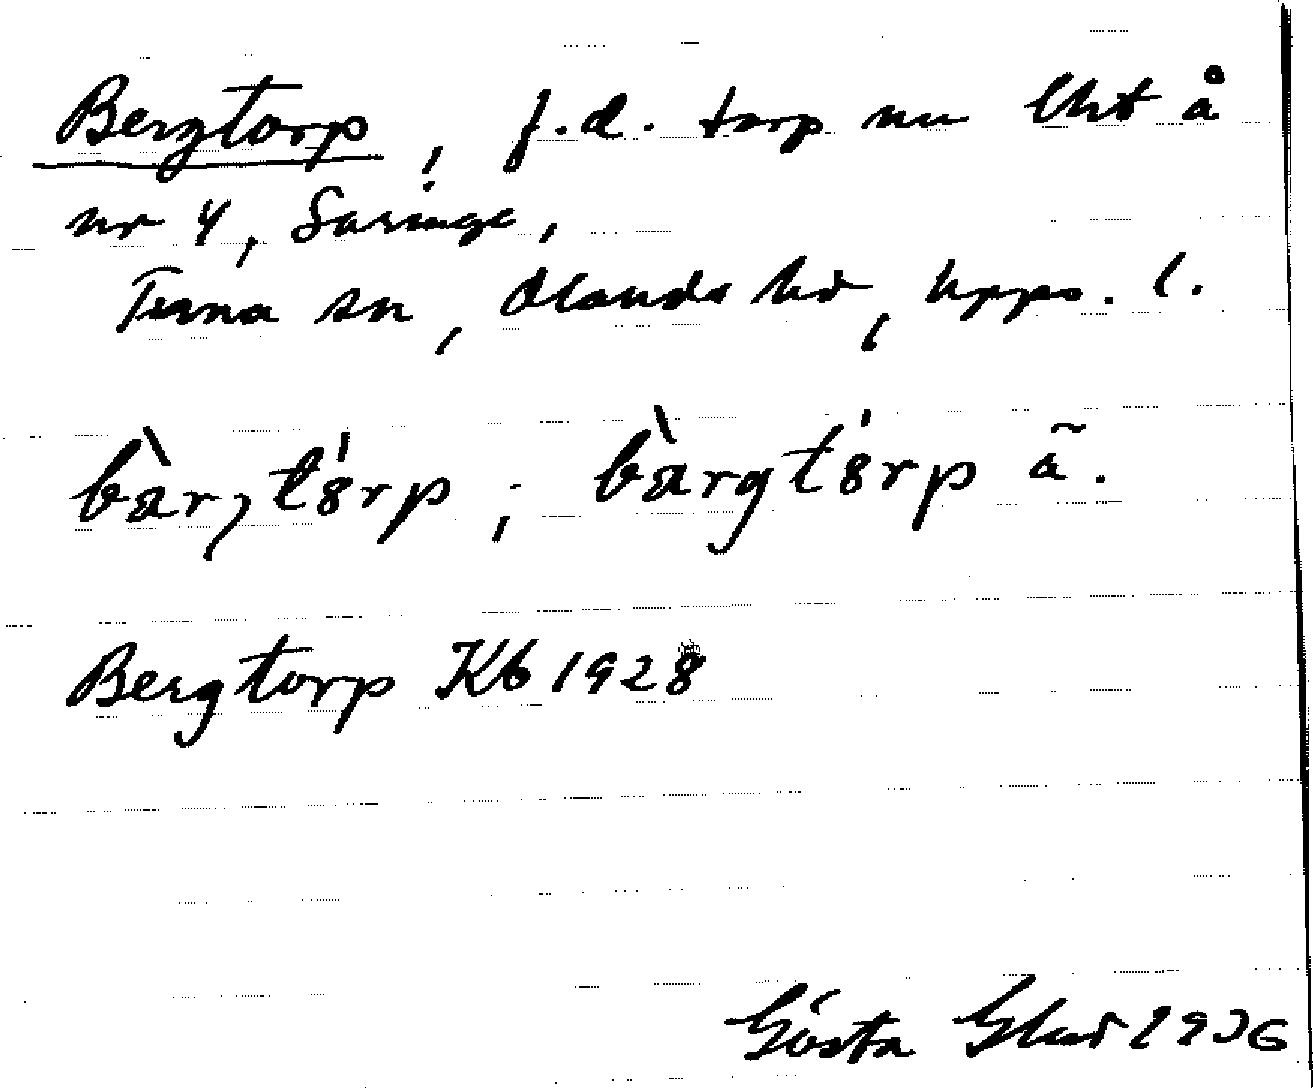 Bergtorp, f.d. torp nu lht å
nr 4, Saringe,
Tuna sn, Olands hd, Upps. l.
bàrȝtórp ; bàrgtórp ã.
Bergtorp Kb 1928
Gösta 1936